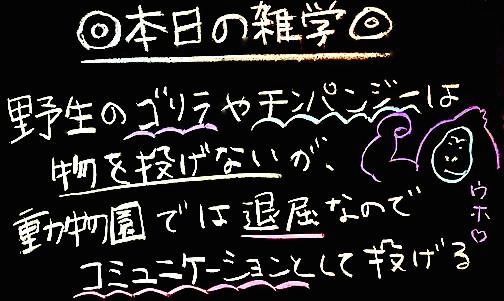 ◎本日の雑学◎
野生のゴリラやチンパンジーは
物を投げないが、
動物園では退屈なので
コミュニケーションとして投げる
ウホ♡